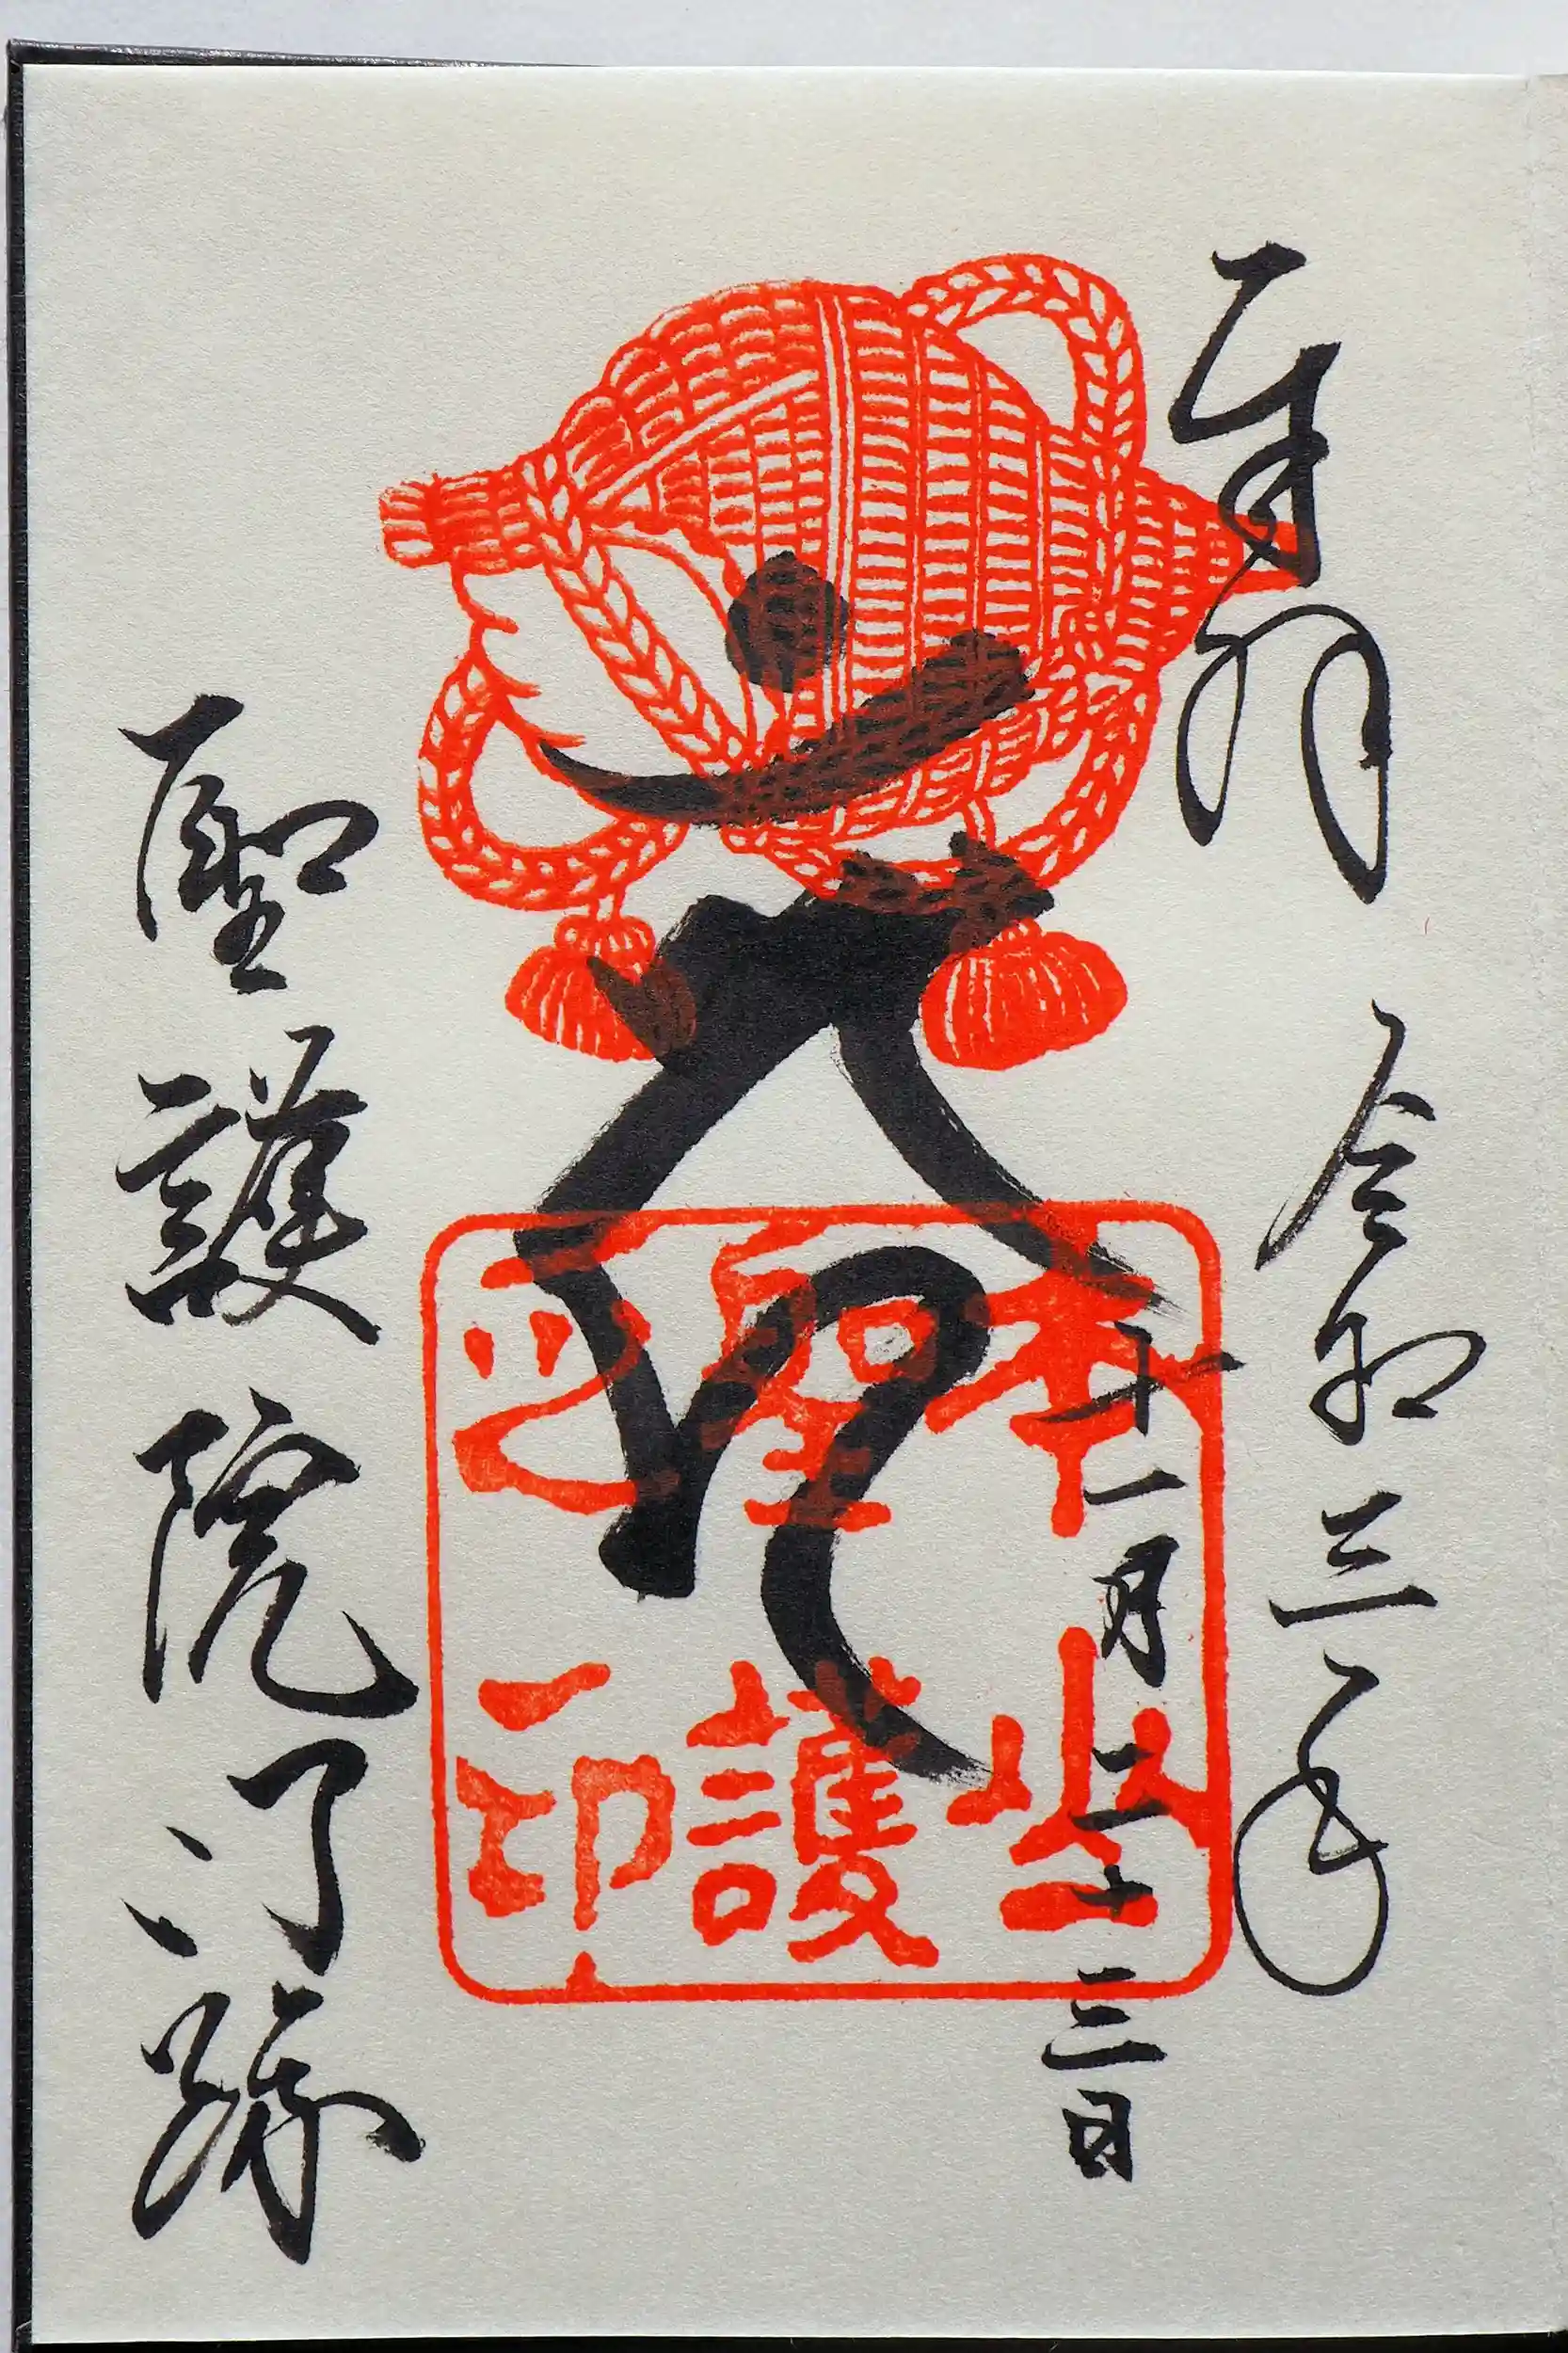 奉拝
令和三年
十一月二十三日
聖護
聖護院門跡